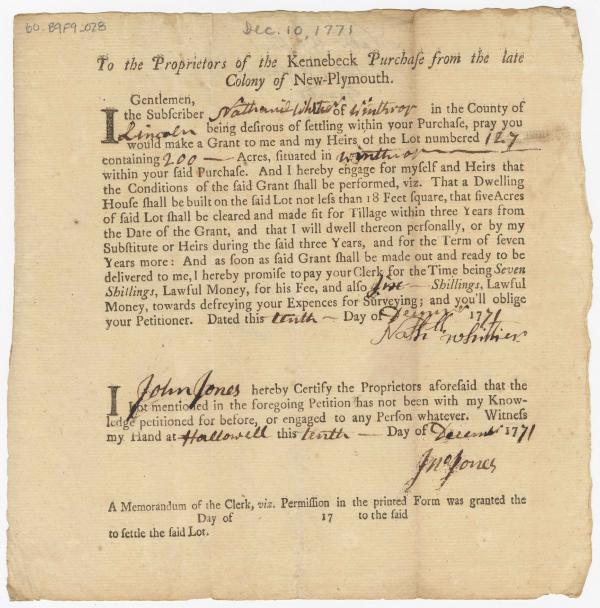 60-B9F9-028 Dec. 10, 1771
To the Proprietors of the Kennebeck Purchaſe from the late
Colony of New-Plymouth.
Gentlemen,
I the Subſcriber Nathaniel Whitier of Winthrop in the County of
Lincoln being deſirous of ſettling within your Purchaſe, pray you
would make a Grant to me and my Heirs of the Lot numbered 127
containing 200 — Acres, ſituated in Winthrop
within your ſaid Purchaſe. And I hereby engage for myſelf and Heirs that
the Conditions of the ſaid Grant ſhall be performed, viz. That a Dwelling
Houſe ſhall be built on the ſaid Lot not leſs than 18 Feet ſquare, that five Acres
of ſaid Lot ſhall be cleared and made fit for Tillage within three Years from
the Date of the Grant, and that I will dwell thereon perſonally, or by my
Subſtitute or Heirs during the ſaid three Years, and for the Term of ſeven
Years more: And as ſoon as ſaid Grant ſhall be made out and ready to be
delivered to me, I hereby promiſe to pay your Clerk for the Time being Seven
Shillings, Lawful Money, for his Fee, and alſo five — Shillings, Lawful
Money, towards defreying your Expences for Surveying; and you'll oblige
your Petitioner. Dated this tenth — Day of Decemr 1771
Nathll Whittier
I John Jones hereby Certify the Proprietors aforeſaid that the
Lot mentioned in the foregoing Petition has not been with my Know-
ledge petitioned for before, or engaged to any Perſon whatever. Witneſs
my Hand at Hallowell this tenth — Day of Decemr 1771
Jno Jones
A Memorandum of the Clerk, viz. Permiſſion in the printed Form was granted the
Day of 17 to the ſaid
to ſettle the ſaid Lot.